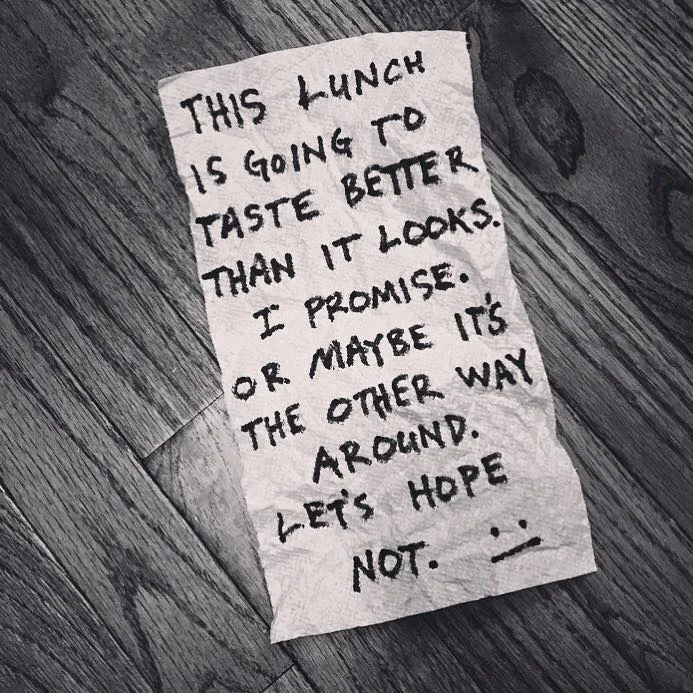 THIS LUNCH
IS GOING TO
TASTE BETTER
THAN IT LOOKS.
I PROMISE.
OR MAYBE IT'S
THE OTHER WAY
AROUND.
LET'S HOPE
NOT. :|